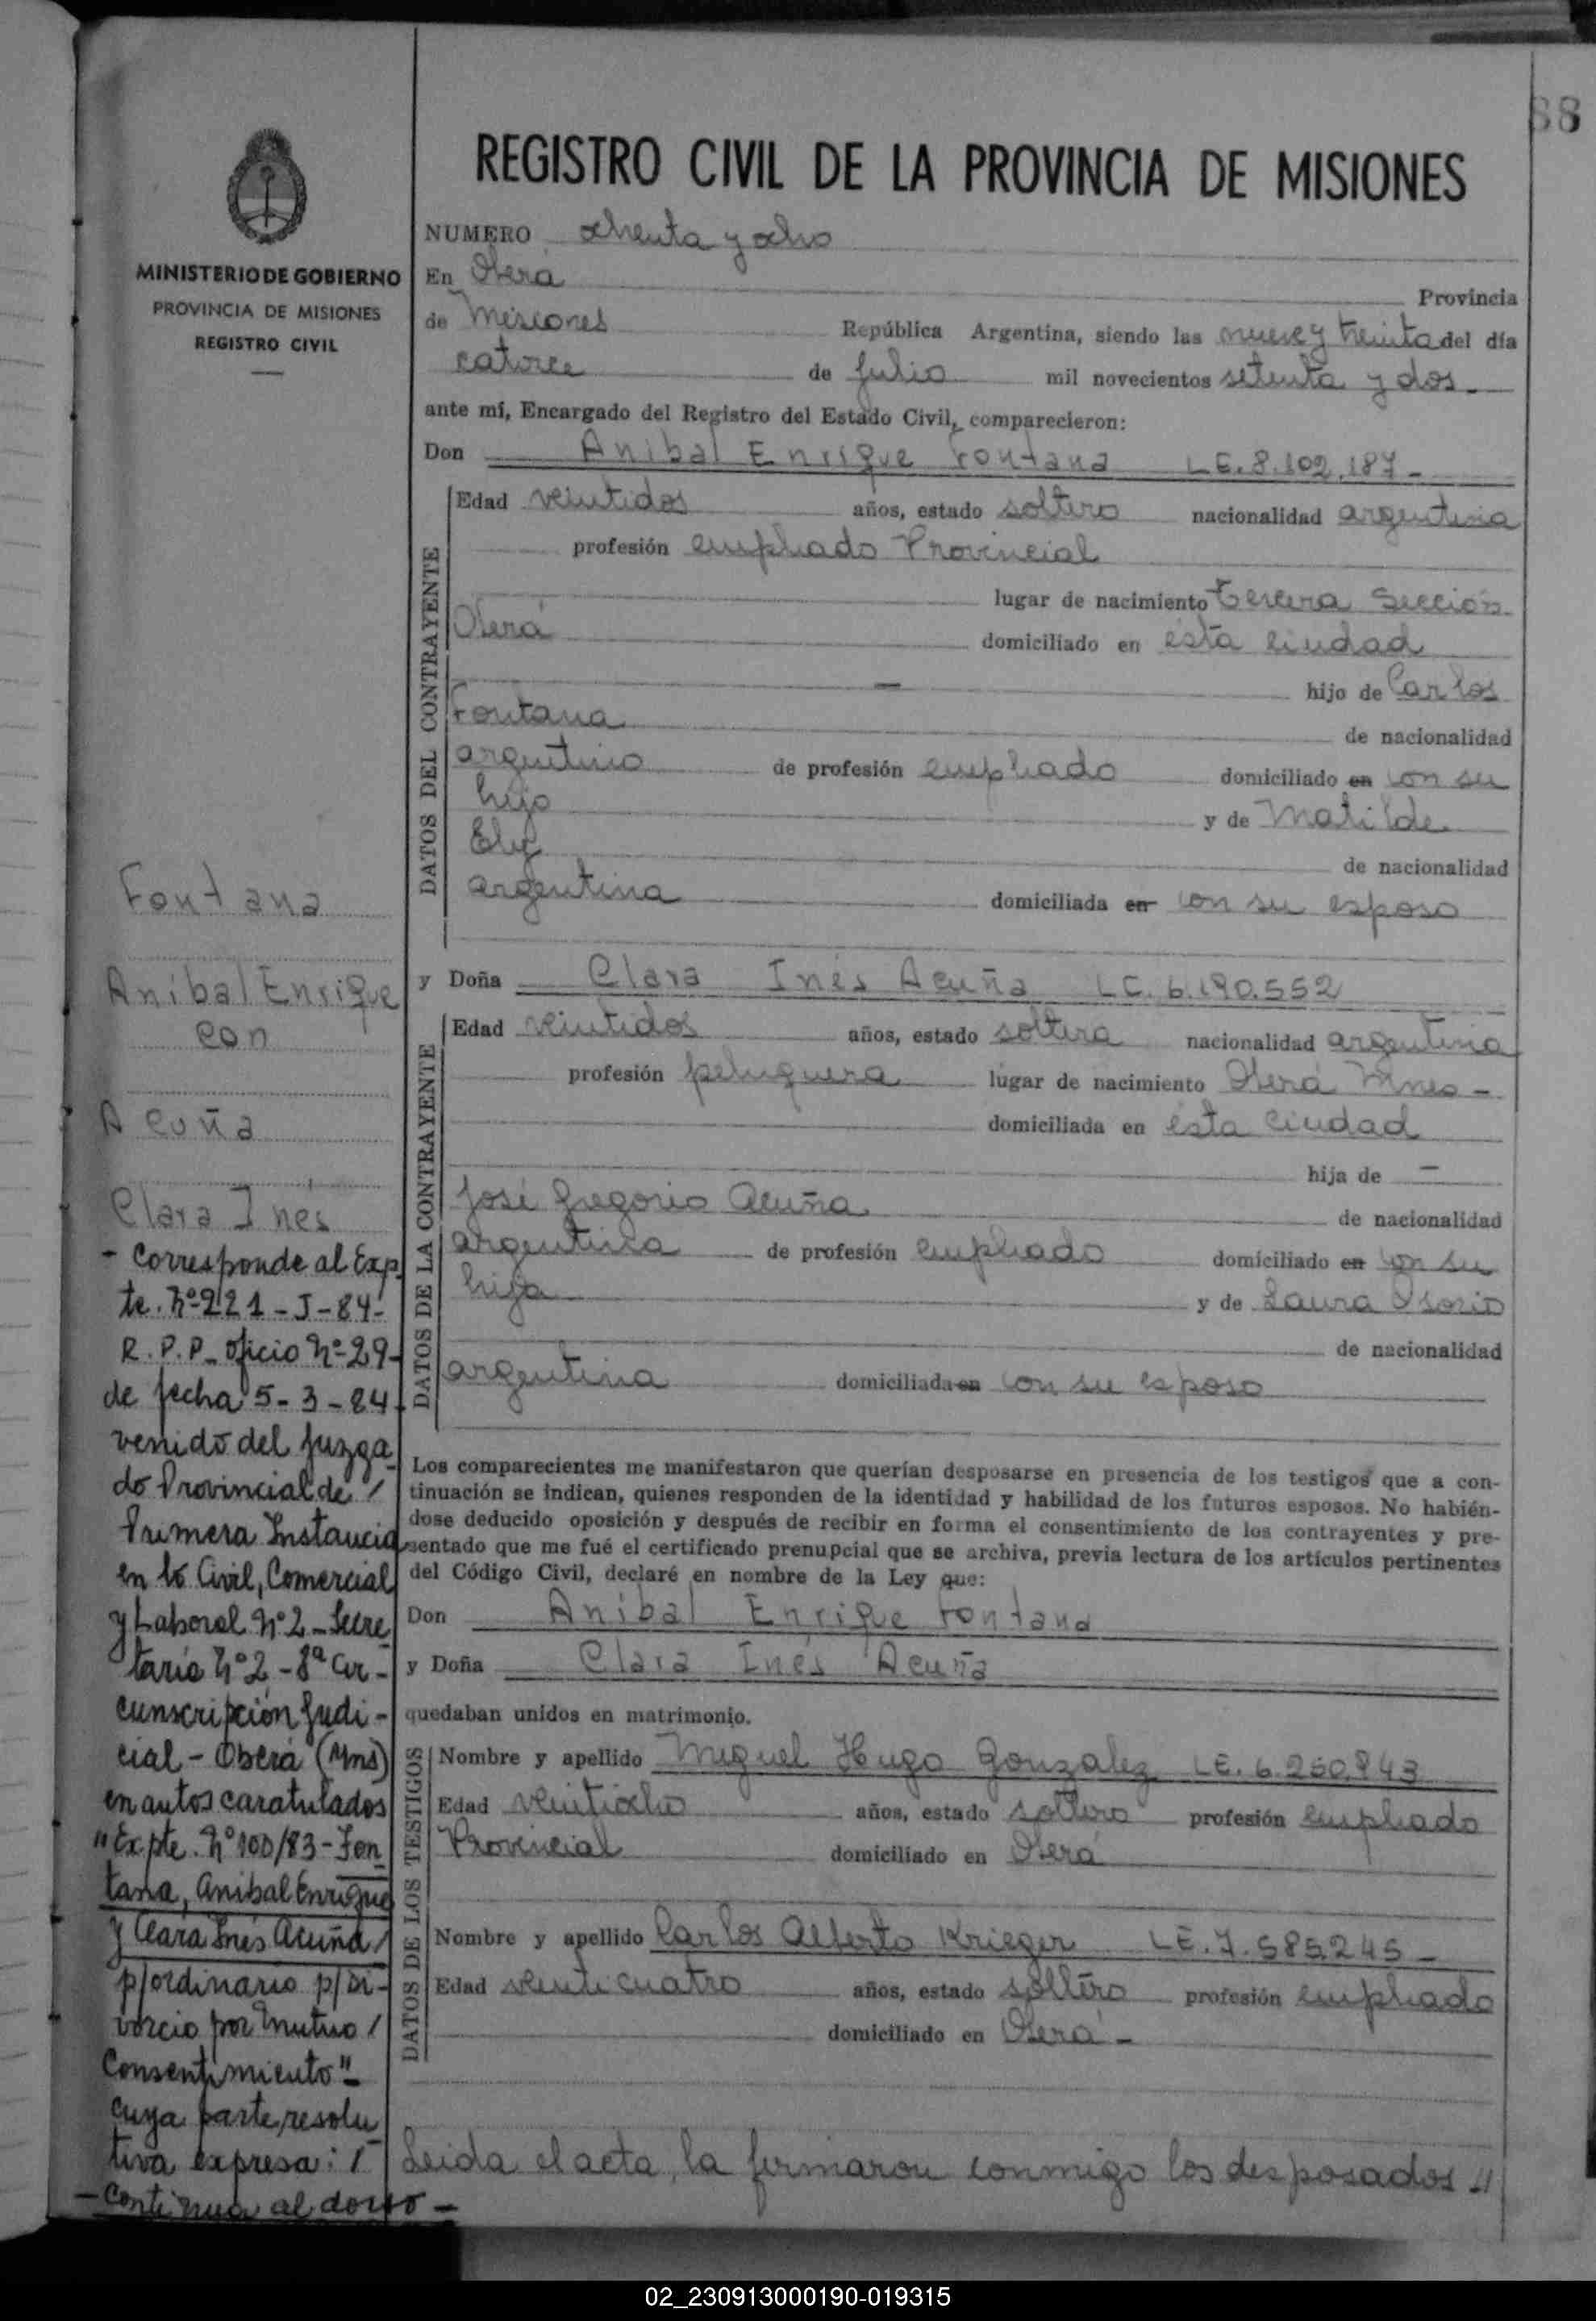 88
REGISTRO CIVIL DE LA PROVINCIA DE MISIONES
MINISTERIO DE GOBIERNO
PROVINCIA DE MISIONES
REGISTRO CIVIL
NUMERO ochenta y ocho
En Oberá Provincia
de Misiones República Argentina, siendo las nueve y treinta del día
catorce de julio mil novecientos setenta y dos
ante mí, Encargado del Registro del Estado Civil, comparecieron:
Don Anibal Enrique Fontana LE. 8.102.187-
DATOS DEL CONTRAYENTE
Edad veintidos años, estado soltero nacionalidad argentina
profesión empleado Provincial
lugar de nacimiento tercera Sección
Oberá domiciliado en ésta ciudad
— hijo de Carlos
Fontana de nacionalidad
argentino de profesión empleado domiciliado en con su
hijo y de Matilde
de nacionalidad
argentina domiciliada en con su esposo
y Doña Clara Inés Acuña LC. 6.190.552
DATOS DE LA CONTRAYENTE
Edad veintidos años, estado soltera nacionalidad argentina
profesión peluquera lugar de nacimiento Oberá Mnes -
domiciliada en ésta ciudad
hija de —
José Gregorio Acuña de nacionalidad
argentina de profesión empleado domiciliado en con su
hija y de Laura Osorio
de nacionalidad
argentina domiciliada en con su esposo
Los comparecientes me manifestaron que querían desposarse en presencia de los testigos que a con-
tinuación se indican, quienes responden de la identidad y habilidad de los futuros esposos. No habién-
dose deducido oposición y después de recibir en forma el consentimiento de los contrayentes y pre-
sentado que me fué el certificado prenupcial que se archiva, previa lectura de los artículos pertinentes
del Código Civil, declaré en nombre de la Ley que:
Don Anibal Enrique Fontana
y Doña Clara Inés Acuña
quedaban unidos en matrimonio.
DATOS DE LOS TESTIGOS
Nombre y apellido Miguel Hugo Gonzalez LE. 6.250.843
Edad veintiocho años, estado soltero profesión empleado
Provincial domiciliado en Oberá
Nombre y apellido Carlos Alberto Krieger LE. 7.585.245-
Edad veinticuatro años, estado soltero profesión empleado
domiciliado en Oberá -
Leida el acta, la firmaron conmigo los desposados
Fontana
Anibal Enrique
con
Acuña
Clara Inés
- Corresponde al Exp
te. Nº 221 - J - 84-
R.P.P. Oficio Nº 29-
de fecha 5-3-84-
venido del Juzga
do Provincial de /
Primera Instancia
en lo Civil, Comercial
y Laboral Nº 2 - Secre
taría Nº 2 - 8ª Cir-
cunscripción Judi-
cial - Oberá (Mns)
en autos caratulados
"Expte. Nº 100/83 - Fon
tana, Anibal Enrique
y Clara Inés Acuña /
p/ordinario p/Di-
vorcio por Mutuo /
Consentimiento" -
cuya parte resolu
tiva expresa: /
- Continua al dorso -
02_230913000190-019315